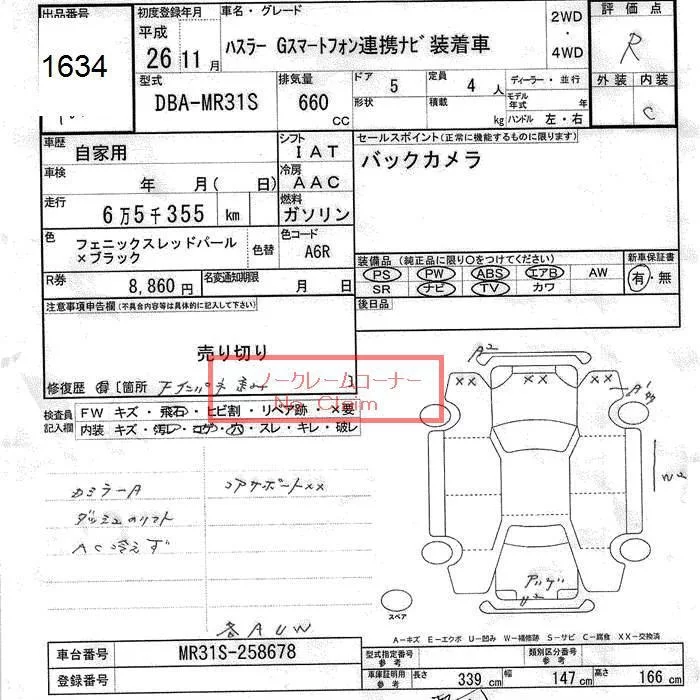 出品番号
1634
初度登録年月
平成
26 11月
車名・グレード
ハスラー Gスマートフォン連携ナビ装着車
2WD
・
4WD
評価点
R
外装 内装
C
型式
DBA-MR31S
排気量
660
CC
ドア 5
形状
定員 4 人
積載 kg
ディーラー・並行
モデル年式 年
ハンドル 左・右
車歴 自家用
シフト IAT
車検 年 月( 日)
冷房 AAC
走行 6万5千355 km
燃料 ガソリン
色 フェニックスレッドパール×ブラック
色替
色コード A6R
R券 8,860円
名変通知期限 月 日
セールスポイント(正常に機能するものに限ります)
バックカメラ
装備品 (純正品に限り○をつけてください)
PS PW ABS エアB AW
SR ナビ TV カワ
新車保証書
有・無
後日品
注意事項申告欄 (不具合内容等は具体的に記入して下さい)
売り切り
ノークレームコーナー
No Claim
修復歴 有 〔箇所 〕
検査員記入欄
FW キズ・飛石・ヒビ割・リペア跡・×要
内装 キズ・汚レ・コゲ・穴・スレ・キレ・破レ
A2
XX XX XX
カミラーA
コアサポートXX
W2
AC冷えず
U2
各AUW
スペア
A-キズ E-エクボ U-凹み W-補修跡 S-サビ C-腐食 XX-交換済
車台番号 MR31S-258678
登録番号
型式指定番号 参考
類別区分番号 参考
車庫証明用 参考
長さ 339 cm 幅 147 cm 高さ 166 cm